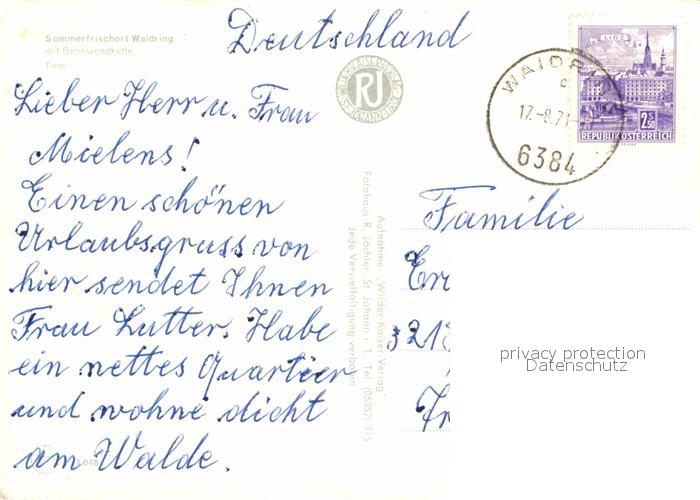 Sommerfrischort Waidring
mit Sonnwendkette,
Tirol
Deutschland
Lieber Herr u. Frau
Mielens!
Einen schönen
Urlaubsgruss von
hier sendet Ihnen
Frau Lutter. Habe
ein nettes Quartier
und wohne dicht
am Walde.
RJ
Aufnahme: „Wilder-Kaiser-Verlag
Fotohaus R. Jöchler, St. Johann i. T., Tel. (05352) 315
Jede Vervielfältigung verboten
LINZ
2.50
REPUBLIK ÖSTERREICH
WAIDRING
c
17.-8.71
6384
Familie
privacy protection
Datenschutz